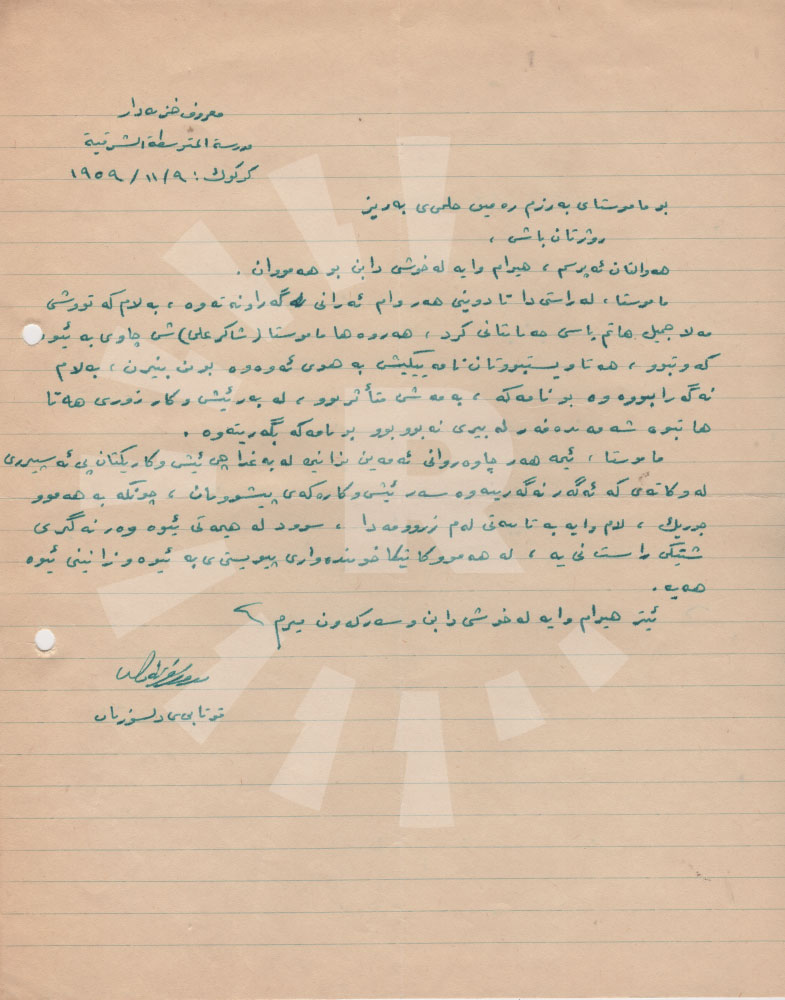 معروف خزنەدار
مدرسة المتوسطة الشرقية
کرکوك: ٩/ ١١/ ١٩٥٩
بو ماموستای بەرزم رەمیق حلمی ی بەریز
روژتان باش ،
هەوالتان ئەپرسم ، هیوام وایە لەخوشی دابن بو هەمووان .
ماموستا ، لەراستی دا تادوینی هەر وام ئەزانی نەگەراونەتەوە ، بەلام کە تووشی
مەلا جمیل هاتم باسی حەتانتانی کرد ، هەروەها ماموستا (شاکر علی) ش چاوی بە ئیوە
کەوتبوو ، هەتا ویستبووتان نامەییکیش بە هوی ئەوەوە بومن بنیرن ، بەلام
نەگەرابووەوە بو نامەکە ، بەمەش متأثر بوو ، لە بەر ئیش وکار زوری هەتا
هاتبوە شەمەندەفەر لە بیری نەبووبوو بو نامەکە بگەریتەوە .
ماموستا ، ئیمە هەر چاوەروانی ئەمەین بزانین لە بەغدا چی ئیش وکاریکتان پی ئەسپیرری
لەوکاتەی کە ئەگەر نەگەرینەوە سەر ئیش وکارەکەی پیشوومان ، چونکە بە هەموو
جوریك ، لام وایە بە تایبەتی لەم زروفەدا ، سوود لە هیمەتی ئیوە وەر نەگری
شتیکی راست نی یە ، لە هەموو کاتیکا خویندەواری پیویستی بە ئیوە وزانینی ئیوە
هەیە .
ئیتر هیوام وایە لەخوشی دابن وسەرکەون میرم
قوتابی ی دلسوزتان